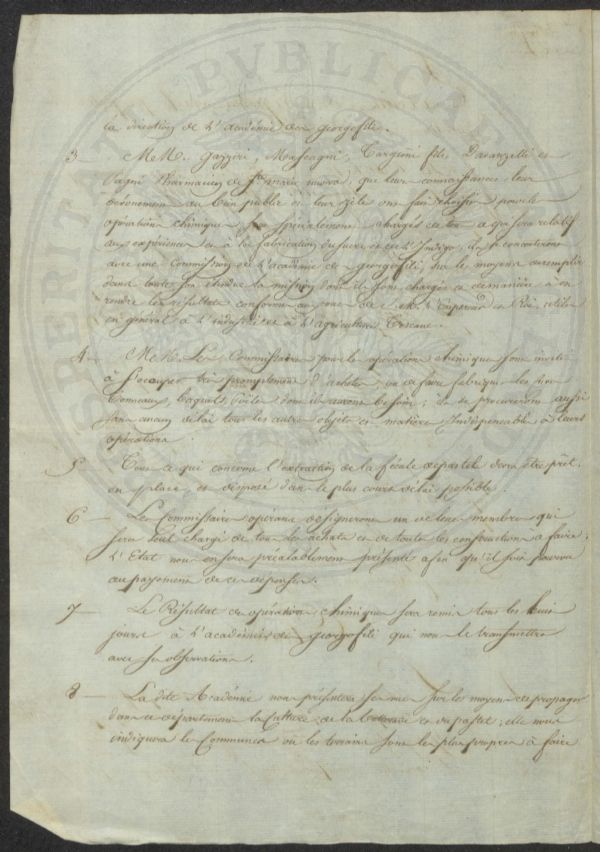 la direction de l'académie des georgofili.
3 M.M. Gazzeri, Mascagni, Targioni fils, Davanzelli et
Pharmacien de Ste marie nuova, que leurs connoissances, leur
devouement au bien public et leur zèle ont fait choisir pour les
opérations chimiques, sont spécialement chargés de tout ce qui sera relatif
aux expériences et à la fabrication du sucre et de l'Indigo, ils se concerteront
avec une Commission de l'académie des georgofili, sur les moyens de remplir
dans toute son étendue la mission dont ils sont chargés de manière à en
rendre les résultats conformes aux vues de S.M. l'Empereur et Roi, utiles
en général à l'industrie et à l'agriculture Toscane.
4 M.M. Les Commissaires pour les opérations chimiques sont invités
à s'occuper très promptement d'acheter, ou de faire fabriquer les
Tonneaux, Baquets, Poëles dont ils auront besoin; de se procurer aussi
sans aucun délai tous les autres objets et matières Indispensables à leurs
opérations.
5 Tout ce qui concerne l'extraction de la fécule de pastel devra être prêt,
en place, et disposé dans le plus court délai possible.
6 Les Commissaires opérans désigneront un de leurs membres qui
sera seul chargé de tous les achats et de toutes les constructions à faire;
L'Etat nous en sera préalablement présenté afin qu'il soit pourvu
au payement de ces dépenses.
7 Le Résultat des opérations chimiques sera remis tous les huit
jours à l'académie des georgofili qui nous le transmettra
avec ses observations.
8 La dite Académie nous présentera ses vues sur les moyens de propager
dans ce département la Culture de la betterave et du pastel; elle nous
indiquera les Communes où les terrains sont les plus propres à faire
PVBLICAE